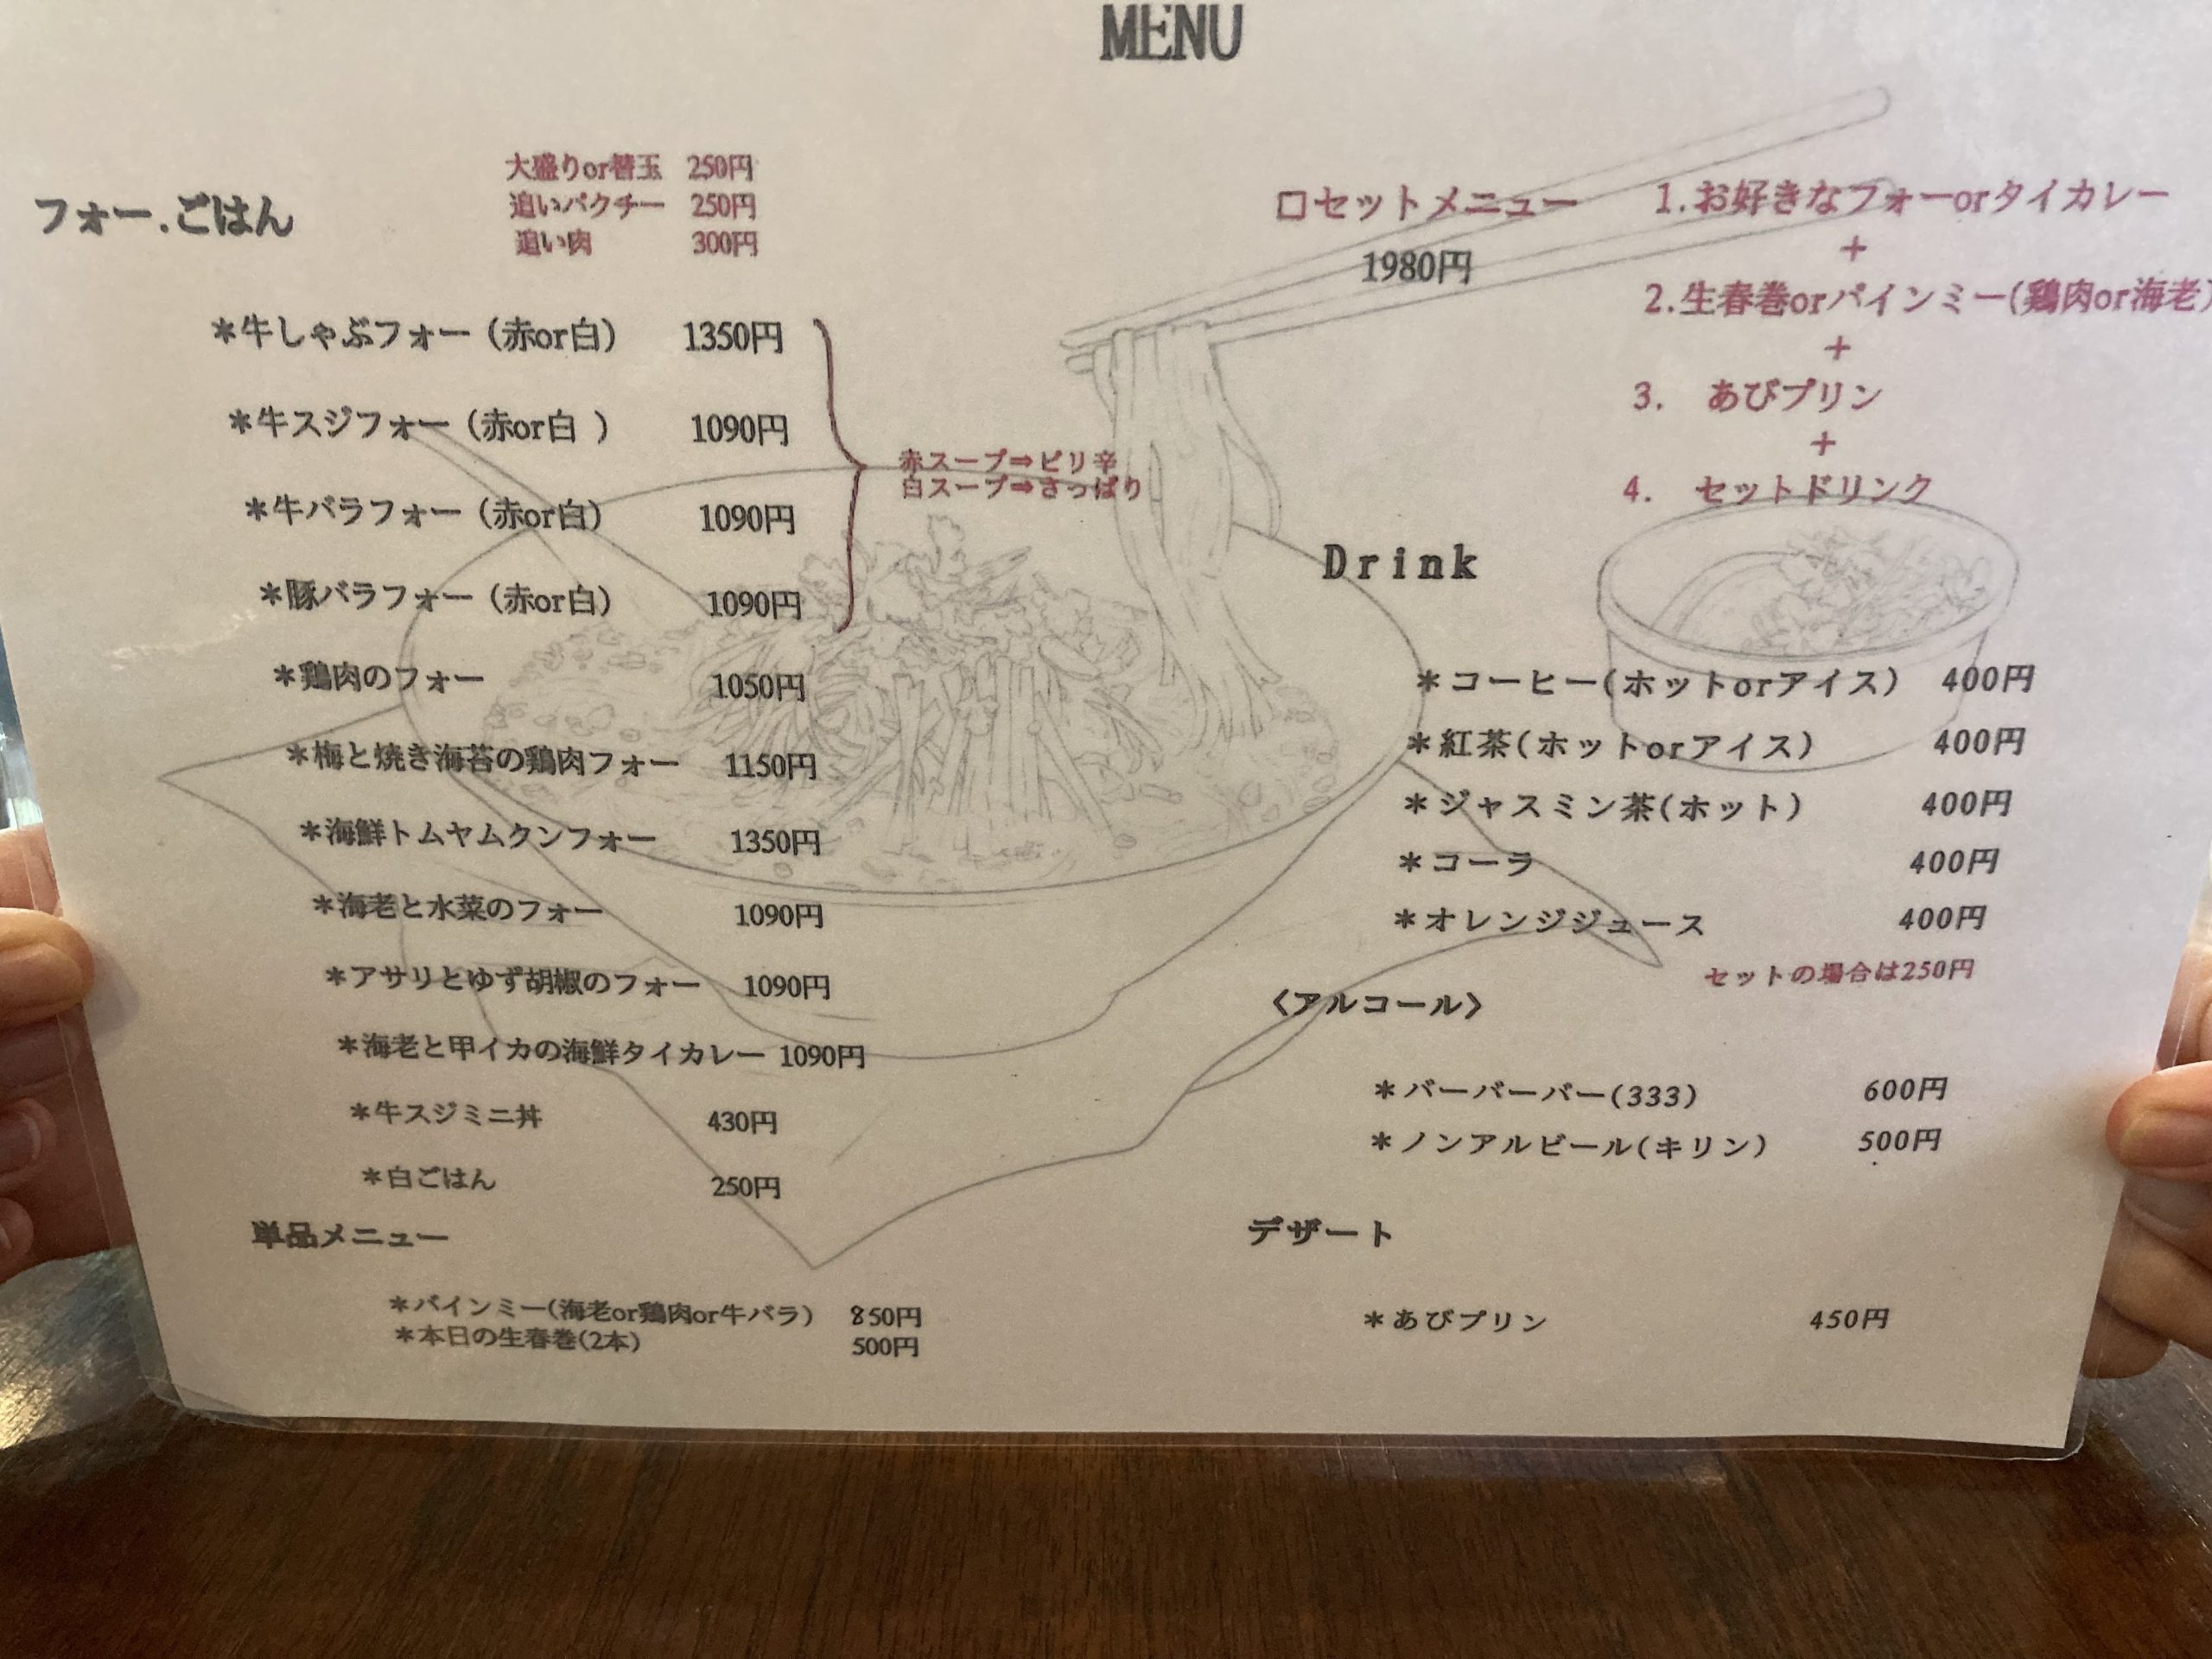 MENU
フォー.ごはん
大盛りor替玉 250円
追いパクチー 250円
追い肉 300円
*牛しゃぶフォー (赤or白) 1350円
*牛スジフォー (赤or白 ) 1090円
*牛バラフォー (赤or白) 1090円
*豚バラフォー (赤or白) 1090円
赤スープ⇒ピリ辛
白スープ⇒さっぱり
*鶏肉のフォー 1050円
*梅と焼き海苔の鶏肉フォー 1150円
*海鮮トムヤムクンフォー 1350円
*海老と水菜のフォー 1090円
*アサリとゆず胡椒のフォー 1090円
*海老と甲イカの海鮮タイカレー 1090円
*牛スジミニ丼 430円
*白ごはん 250円
単品メニュー
*バインミー(海老or鶏肉or牛バラ) 850円
*本日の生春巻(2本) 500円
□セットメニュー
1980円
1.お好きなフォーorタイカレー
+
2.生春巻orバインミー(鶏肉or海老)
+
3. あびプリン
+
4. セットドリンク
Drink
*コーヒー(ホットorアイス) 400円
*紅茶(ホットorアイス) 400円
*ジャスミン茶(ホット) 400円
*コーラ 400円
*オレンジジュース 400円
セットの場合は250円
〈アルコール〉
*バーバーバー(333) 600円
*ノンアルビール(キリン) 500円
デザート
*あびプリン 450円